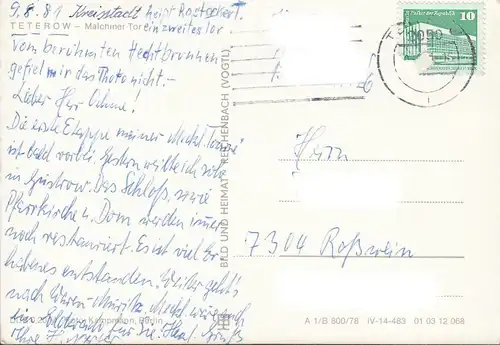 9.8.81 Kreisstadt heißt
TETEROW – Malchiner Tor
ein zweites Tor
Vom berühmten Hechtbrunnen
gefiel mir das Photo nicht. –
Lieber Herr Oehme!
Die erste Etappe meiner „Meckl. Tour"
ist bald vorbei. Gestern weilte ich
in Güstrow. Das Schloß, sowie
Pfarrkirche u. Dom werden immer
noch restauriert. Es ist viel
entstanden. Weiter geht's
nach Waren-Müritz.
Ihre
BILD UND HEIMAT REICHENBACH (VOGTL)
Palast der Republik
10
DDR
Herrn
7304 Roßwein
Berlin
A 1/B 800/78 IV-14-483 01 03 12 068